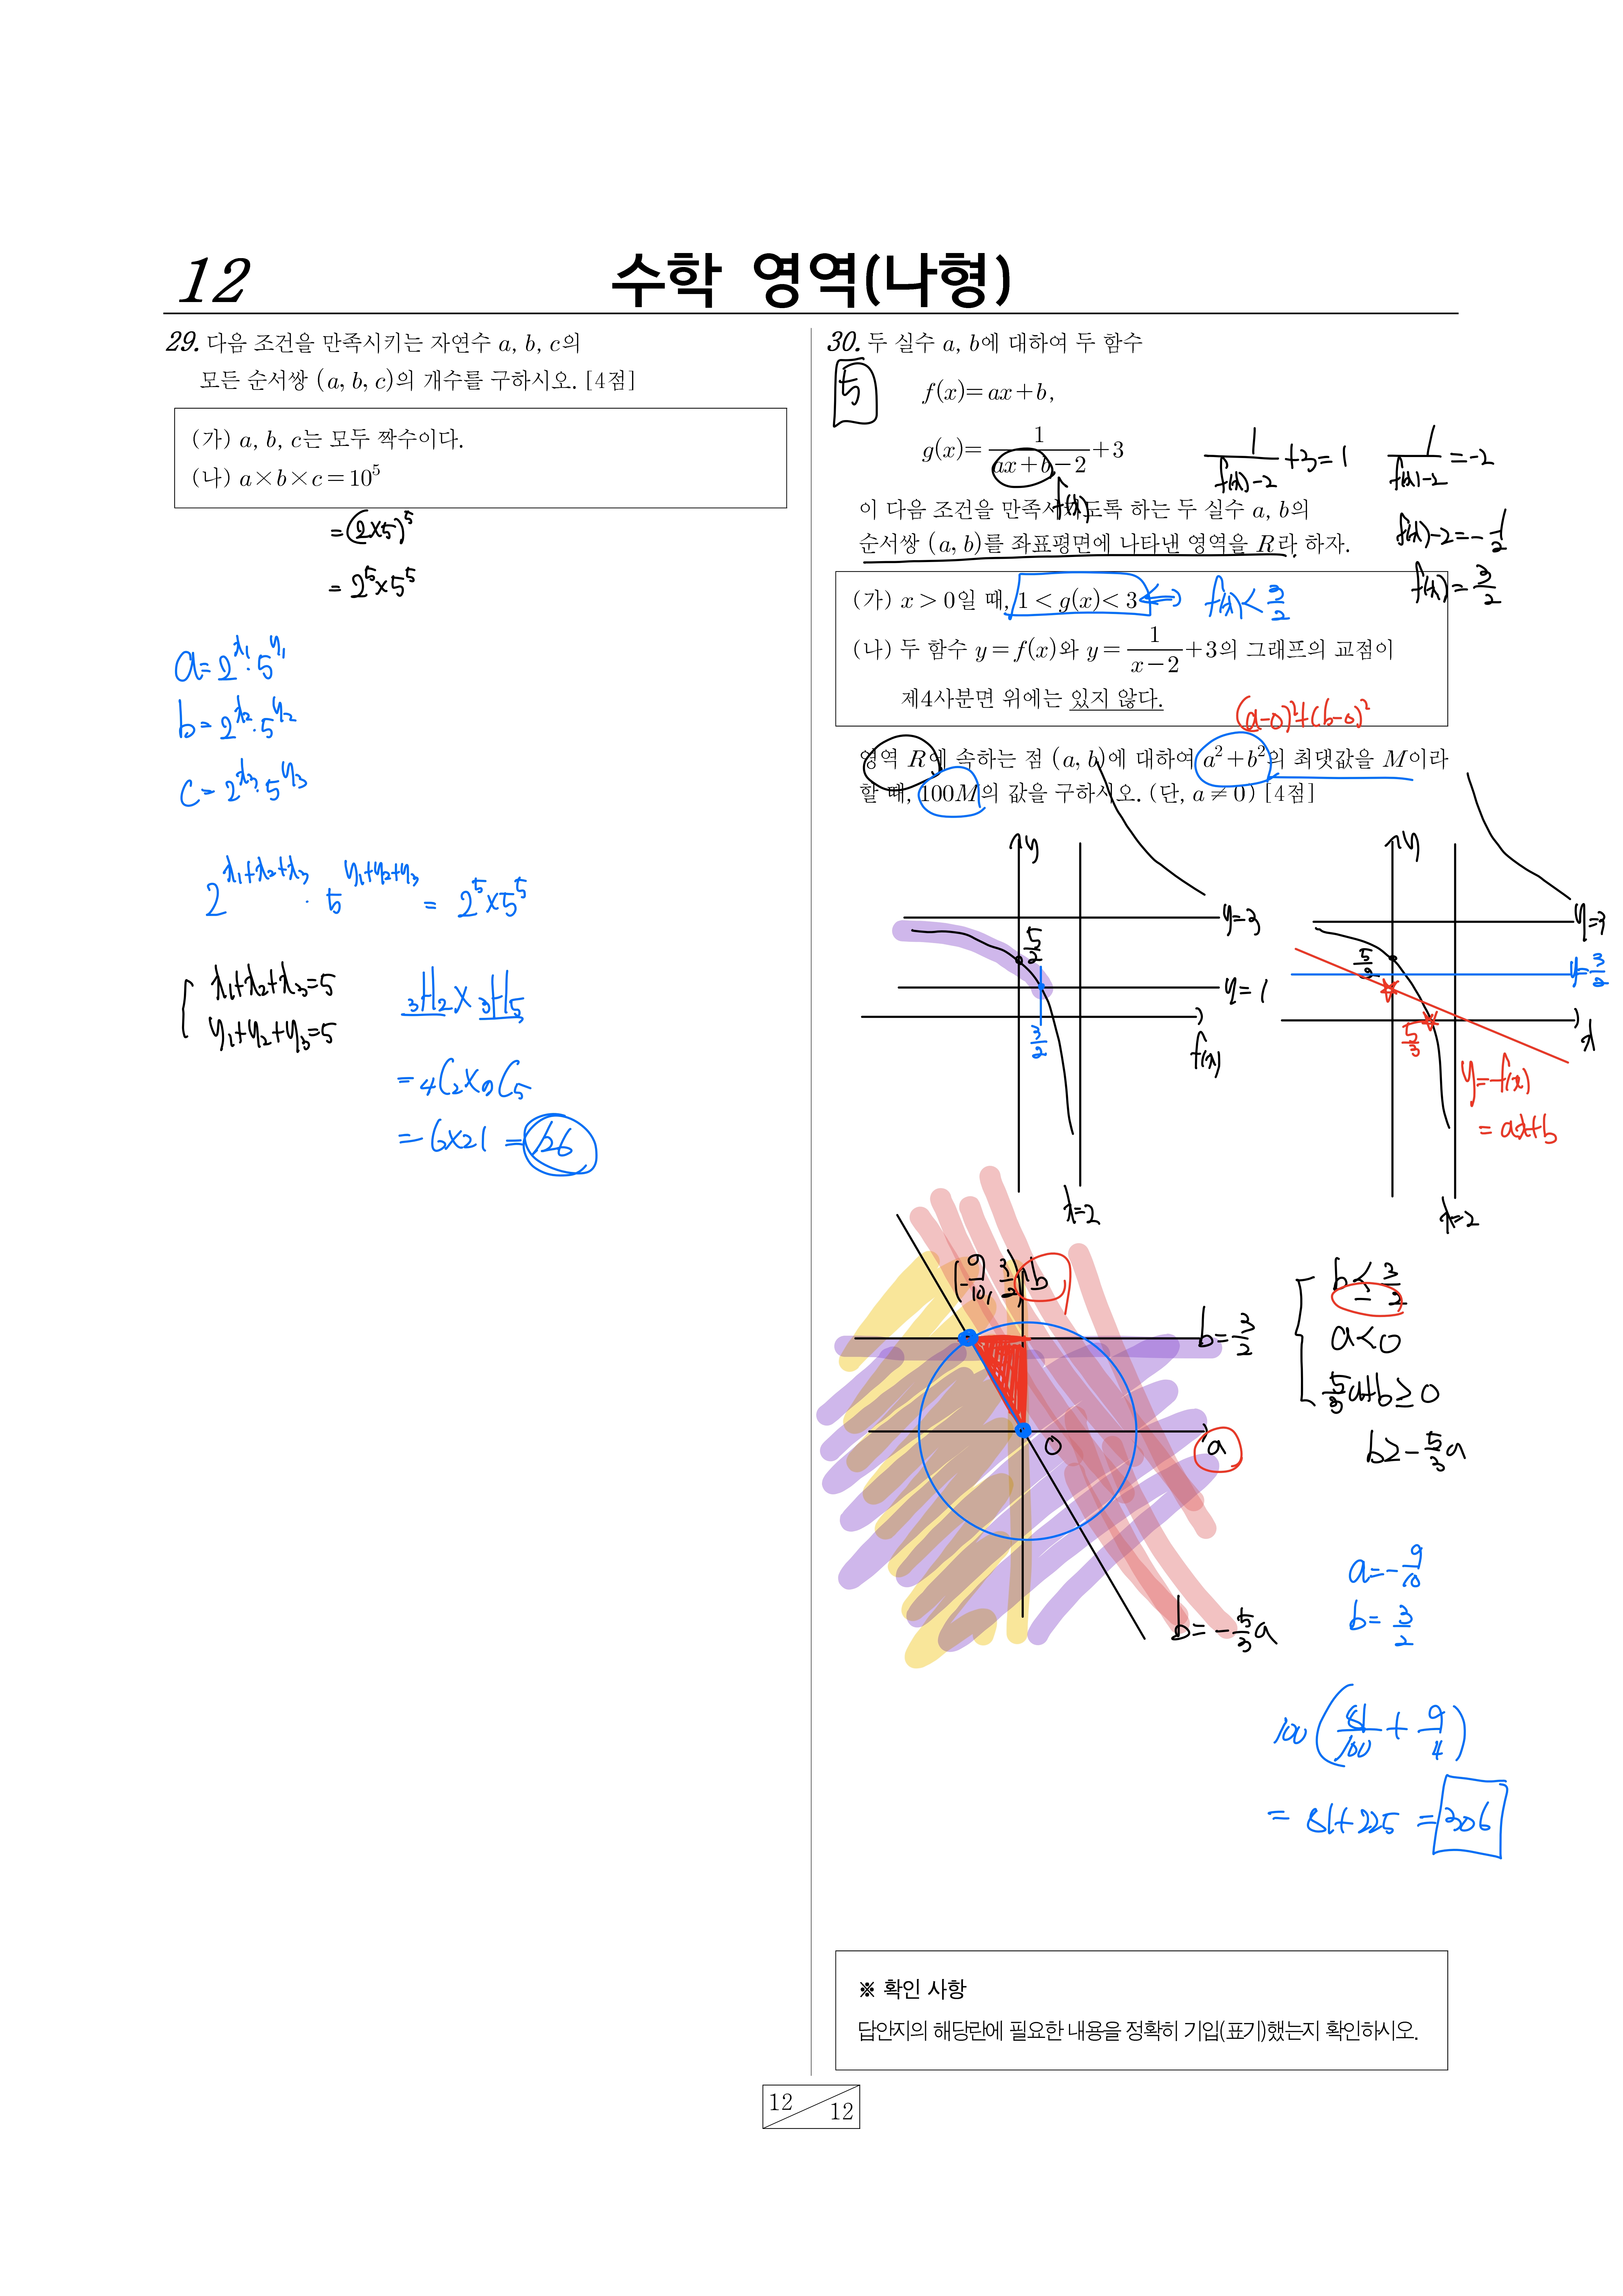 12
수학 영역(나형)
29. 다음 조건을 만족시키는 자연수 a, b, c의
모든 순서쌍 (a, b, c)의 개수를 구하시오. [4점]
(가) a, b, c는 모두 짝수이다.
(나) a×b×c=10⁵
=(2×5)⁵
=2⁵×5⁵
a=2^x₁·5^y₁
b=2^x₂·5^y₂
c=2^x₃·5^y₃
2^(x₁+x₂+x₃)·5^(y₁+y₂+y₃)=2⁵×5⁵
x₁+x₂+x₃=5
y₁+y₂+y₃=5
₃H₂×₃H₅
=₄C₂×₇C₅
=6×21=126
30. 두 실수 a, b에 대하여 두 함수
5
f(x)=ax+b,
g(x)=1/(ax+b-2)+3
f(x)
1/(f(x)-2)+3=1
1/(f(x)-2)=-2
f(x)-2=-1/2
f(x)=3/2
이 다음 조건을 만족시키도록 하는 두 실수 a, b의
순서쌍 (a, b)를 좌표평면에 나타낸 영역을 R라 하자.
(가) x>0일 때, 1<g(x)<3 ⇔ f(x)<3/2
(나) 두 함수 y=f(x)와 y=1/(x-2)+3의 그래프의 교점이
제4사분면 위에는 있지 않다.
(a-0)²+(b-0)²
영역 R에 속하는 점 (a, b)에 대하여 a²+b²의 최댓값을 M이라
할 때, 100M의 값을 구하시오. (단, a≠0) [4점]
y
y=3
5/2
y=1
3/2
f(x)
x=2
y
y=3
5/2
y=3/2
5/3
x
y=f(x)
=ax+b
x=2
(-9/10, 3/2)
b
b=3/2
0
a
b=-5/3a
b≤3/2
a<0
5/3a+b≥0
b≥-5/3a
a=-9/10
b=3/2
100(81/100+9/4)
=81+225=306
※ 확인 사항
답안지의 해당란에 필요한 내용을 정확히 기입(표기)했는지 확인하시오.
12
12